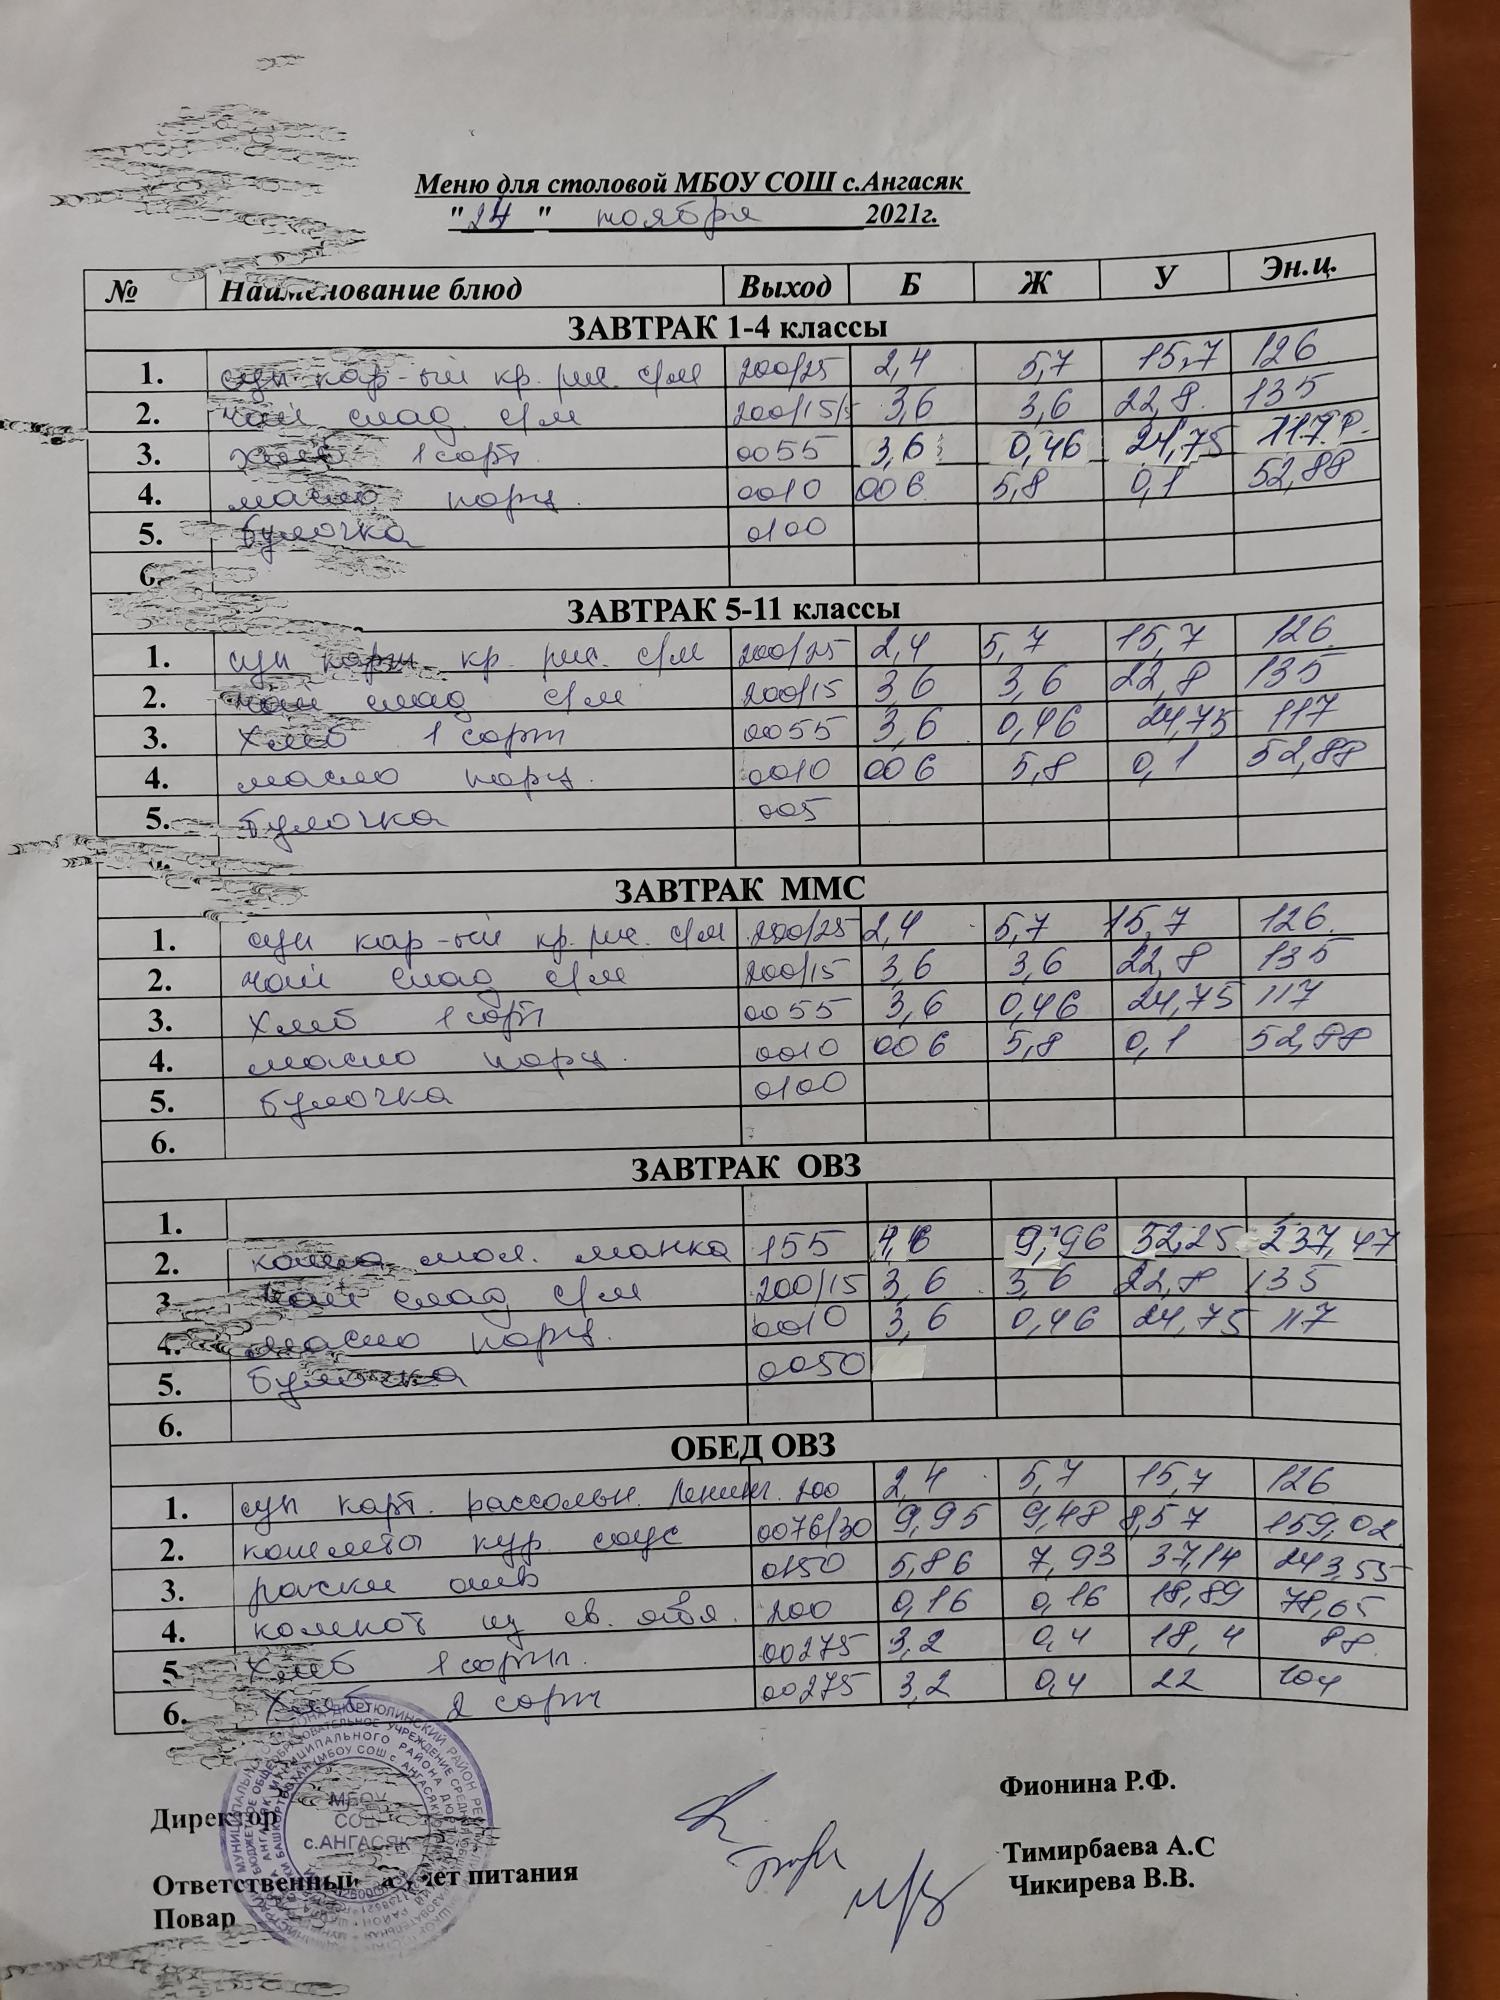 Меню для столовой МБОУ СОШ с.Ангасяк
"24" ноября 2021г.
№ Наименование блюд Выход Б Ж У Эн.ц.
ЗАВТРАК 1-4 классы
1. суп кар-ый кр. рис. с/м 200/25 2,4 5,7 15,7 126
2. чай слад с/м 200/15/ 3,6 3,6 22,8 135
3. хлеб 1 сорт 0055 3,6 0,46 24,75 117
4. масло порц. 0010 006 5,8 0,1 52,88
5. булочка 0100
6.
ЗАВТРАК 5-11 классы
1. суп карт. кр. рис. с/м 200/25 2,4 5,7 15,7 126
2. чай слад с/м 200/15 3,6 3,6 22,8 135
3. Хлеб 1 сорт 0055 3,6 0,46 24,75 117
4. масло порц. 0010 006 5,8 0,1 52,88
5. булочка 005
ЗАВТРАК ММС
1. суп кар-ый кр. рис. с/м 200/25 2,4 5,7 15,7 126
2. чай слад с/м 200/15 3,6 3,6 22,8 135
3. Хлеб 1 сорт 0055 3,6 0,46 24,75 117
4. масло порц. 0010 006 5,8 0,1 52,88
5. булочка 0100
6.
ЗАВТРАК ОВЗ
1.
2. каша мол. манка 155 9,96 32,25 237,47
3 чай слад с/м 200/15 3,6 3,6 22,8 135
4. масло порц. 0010 3,6 0,46 24,75 117
5. булочка 0050
6.
ОБЕД ОВЗ
1. суп карт. рассольн. Ленинг. 200 2,4 5,7 15,7 126
2. котлеты кур. соус 0076/30 9,95 9,48 8,57 159,02
3. рожки отв 0150 5,86 7,93 37,14 243,55
4. компот из св. ябл. 200 0,16 0,16 18,89 78,65
5 Хлеб 1 сорт. 00275 3,2 0,4 18,4 88
6. Хлеб 2 сорт 00275 3,2 0,4 22 104
Директор Фионина Р.Ф.
МБОУ
СОШ
с.АНГАСЯК
Ответственный за учет питания Тимирбаева А.С
Повар Чикирева В.В.